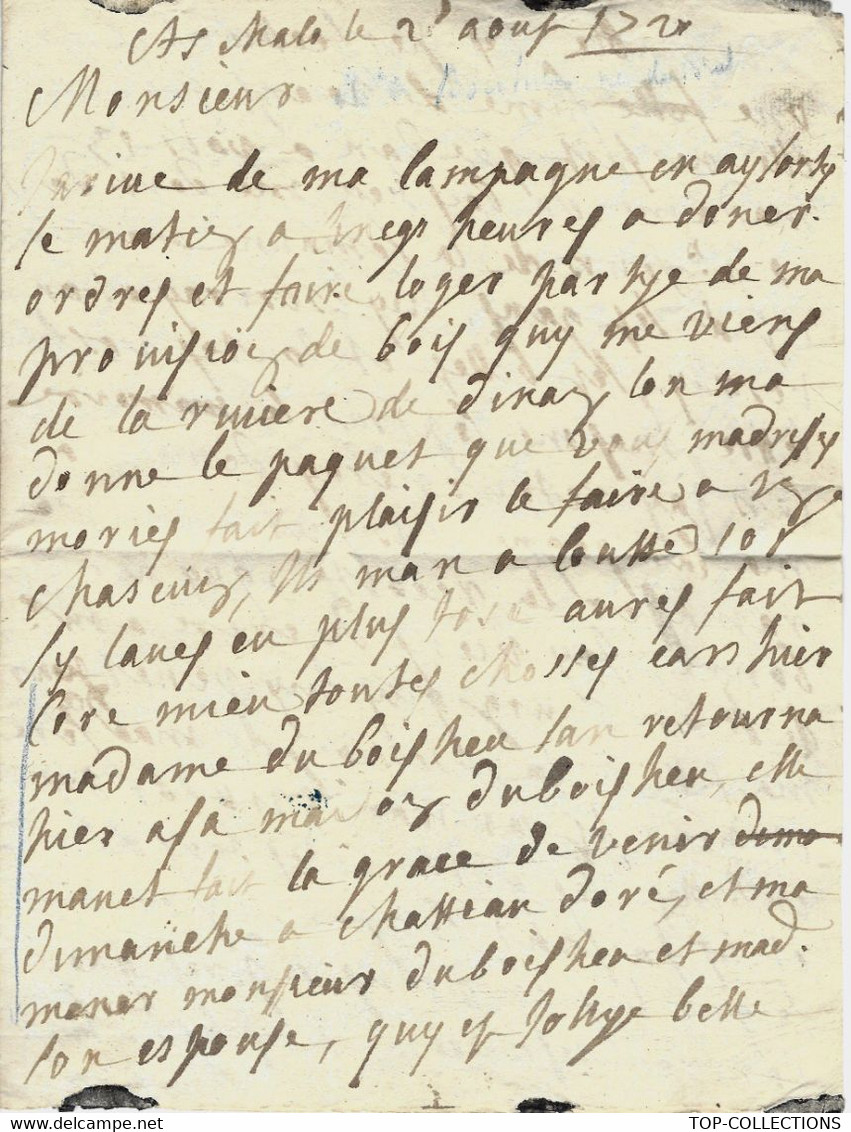 A St Malo le 2e aoust 172
Monsieur
Jarive de ma campagne en ay sorty
ce matin a heures a doner
ordres et faire loger partye de ma
provision de bois quy me viens
de la riviere de dinan lon ma
donne le paquet que vous madressez
fait plaisir le faire a
chaseurs, ils man a coutté 10s
sy laues eu plus tost aures fait
core mieu touttes chosses cars hier
madame du boisheu san retourna
hier a sa maison duboisheu, elle
manet fait la grace de venir
dimanche a chattiau doré, et ma
mener monsieur duboisheu et mad.
son espouse, quy est jollye belle
TOP-COLLECTIONS